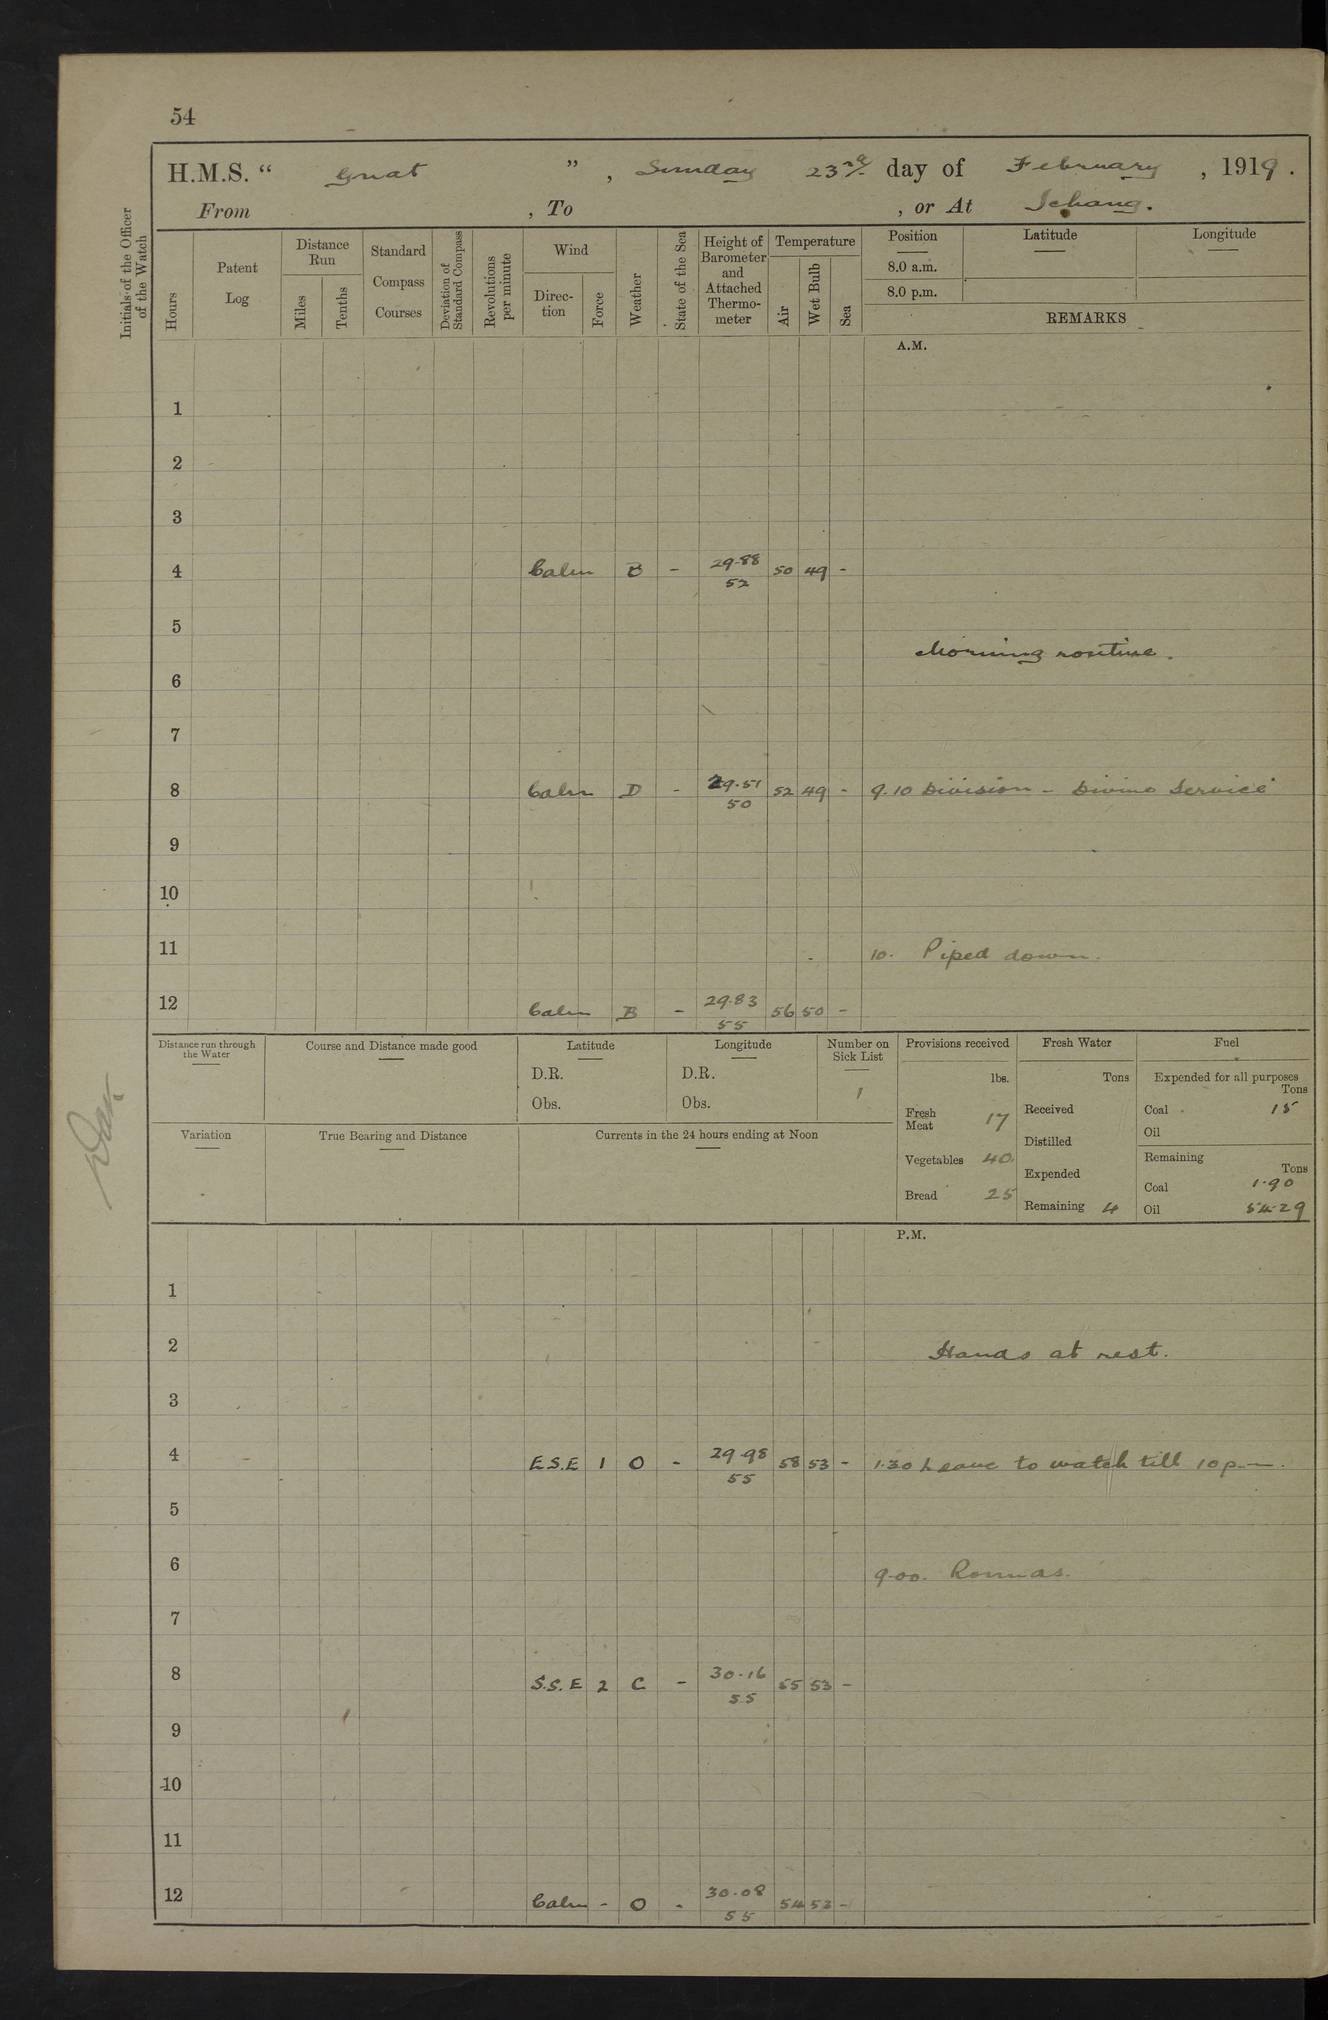 54
H.M.S. “ Gnat ”, Sunday 23rd day of February, 1919.
From , To , or At Ichang.
Initials of the Officer of the Watch
Hours
Patent Log
Distance Run
Miles
Tenths
Standard Compass Courses
Deviation of Standard Compass
Revolutions per minute
Wind
Direction
Force
Weather
State of the Sea
Height of Barometer and Attached Thermometer
Temperature
Air
Wet Bulb
Sea
Position Latitude Longitude
8.0 a.m.
8.0 p.m.
REMARKS
A.M.
1
2
3
4 Calm B - 29.88 50 49 -
52
5
Morning routine.
6
7
8 Calm D - 29.51 52 49 - 9.10 Division - Divine Service
50
9
10
11 10. Piped down.
12 Calm B - 29.83 56 50 -
55
Distance run through the Water
Course and Distance made good
Latitude
D.R.
Obs.
Longitude
D.R.
Obs.
Number on Sick List
1
Provisions received
lbs.
Fresh Meat 17
Vegetables 40
Bread 25
Fresh Water
Tons
Received
Distilled
Expended
Remaining 4
Fuel
Expended for all purposes
Tons
Coal 15
Oil
Remaining
Tons
Coal 1.90
Oil 54.29
Variation
True Bearing and Distance
Currents in the 24 hours ending at Noon
P.M.
1
2 Hands at rest.
3
4 E.S.E 1 O - 29.98 58 53 - 1.30 Leave to watch till 10 p.m.
55
5
6 9.00. Rounds.
7
8 S.S.E 2 C - 30.16 55 53 -
55
9
10
11
12 Calm - O - 30.08 54 53 -
55